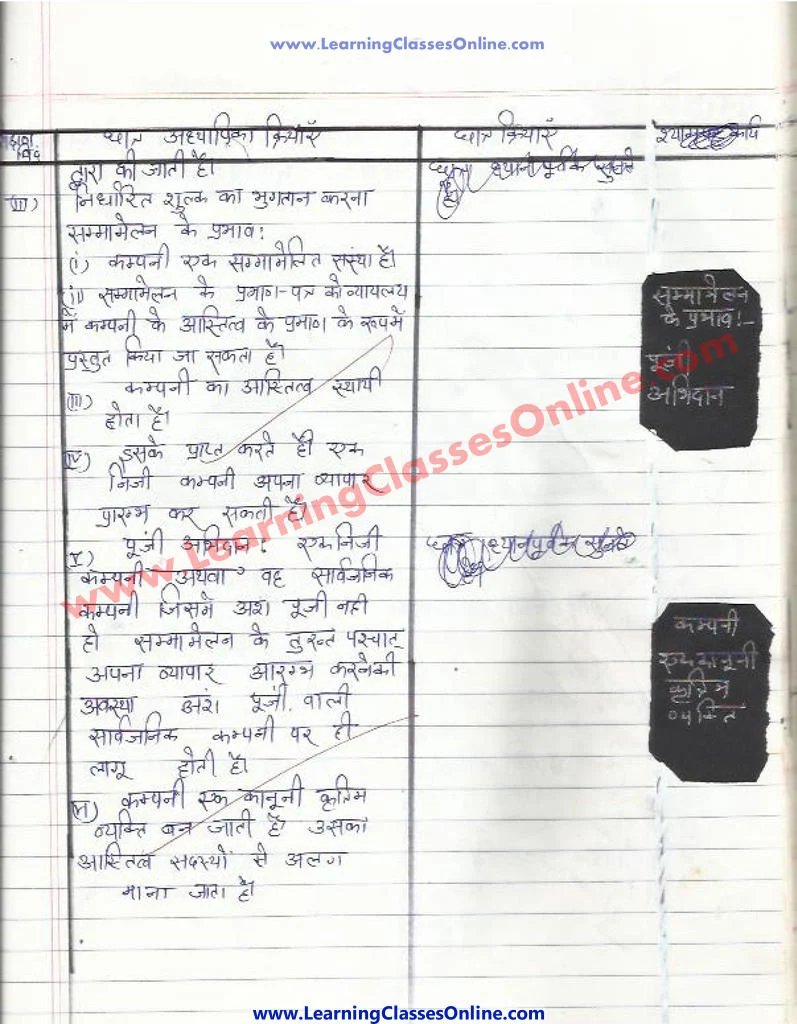 www.LearningClassesOnline.com
छात्र अध्यापिका क्रियाएँ
छात्र क्रियाएं
द्वारा की जाती है।
ध्यान पूर्वक सुनेंगे
III) निर्धारित शुल्क का भुगतान करना
सम्मामेलन के प्रभाव!
(i) कम्पनी एक सम्मामेलित संस्था है।
(ii) सम्मामेलन के प्रमाण-पत्र को न्यायलय
में कम्पनी के आस्तित्व के प्रमाण के रूप में
प्रस्तुत किया जा सकता है।
(III) कम्पनी का आस्तित्व स्थायी
होता है।
IV) इसके प्राप्त करते ही एक
निजी कम्पनी अपना व्यापार
प्रारम्भ कर सकती है।
V) पूंजी अभिदान! एक निजी
ध्यानपूर्वक सुनेंगे
कम्पनी अथवा वह सार्वजनिक
कम्पनी जिसमें अंश पूंजी नही
हो सम्मामेलन के तुरन्त पश्चात्
अपना व्यापार आरम्भ करने की
अवस्था अंश पूंजी वाली
सार्वजनिक कम्पनी पर ही
लागू होती है।
VI) कम्पनी एक कानूनी कृत्रिम
व्यक्ति बन जाती है। उसका
आस्तित्व सदस्यों से अलग
माना जाता है।
सम्मामेलन
के प्रभाव!-
पूंजी
अभिदान
कम्पनी
एक कानूनी
कृत्रिम
व्यक्ति
www.LearningClassesOnline.com
www.LearningClassesOnline.com